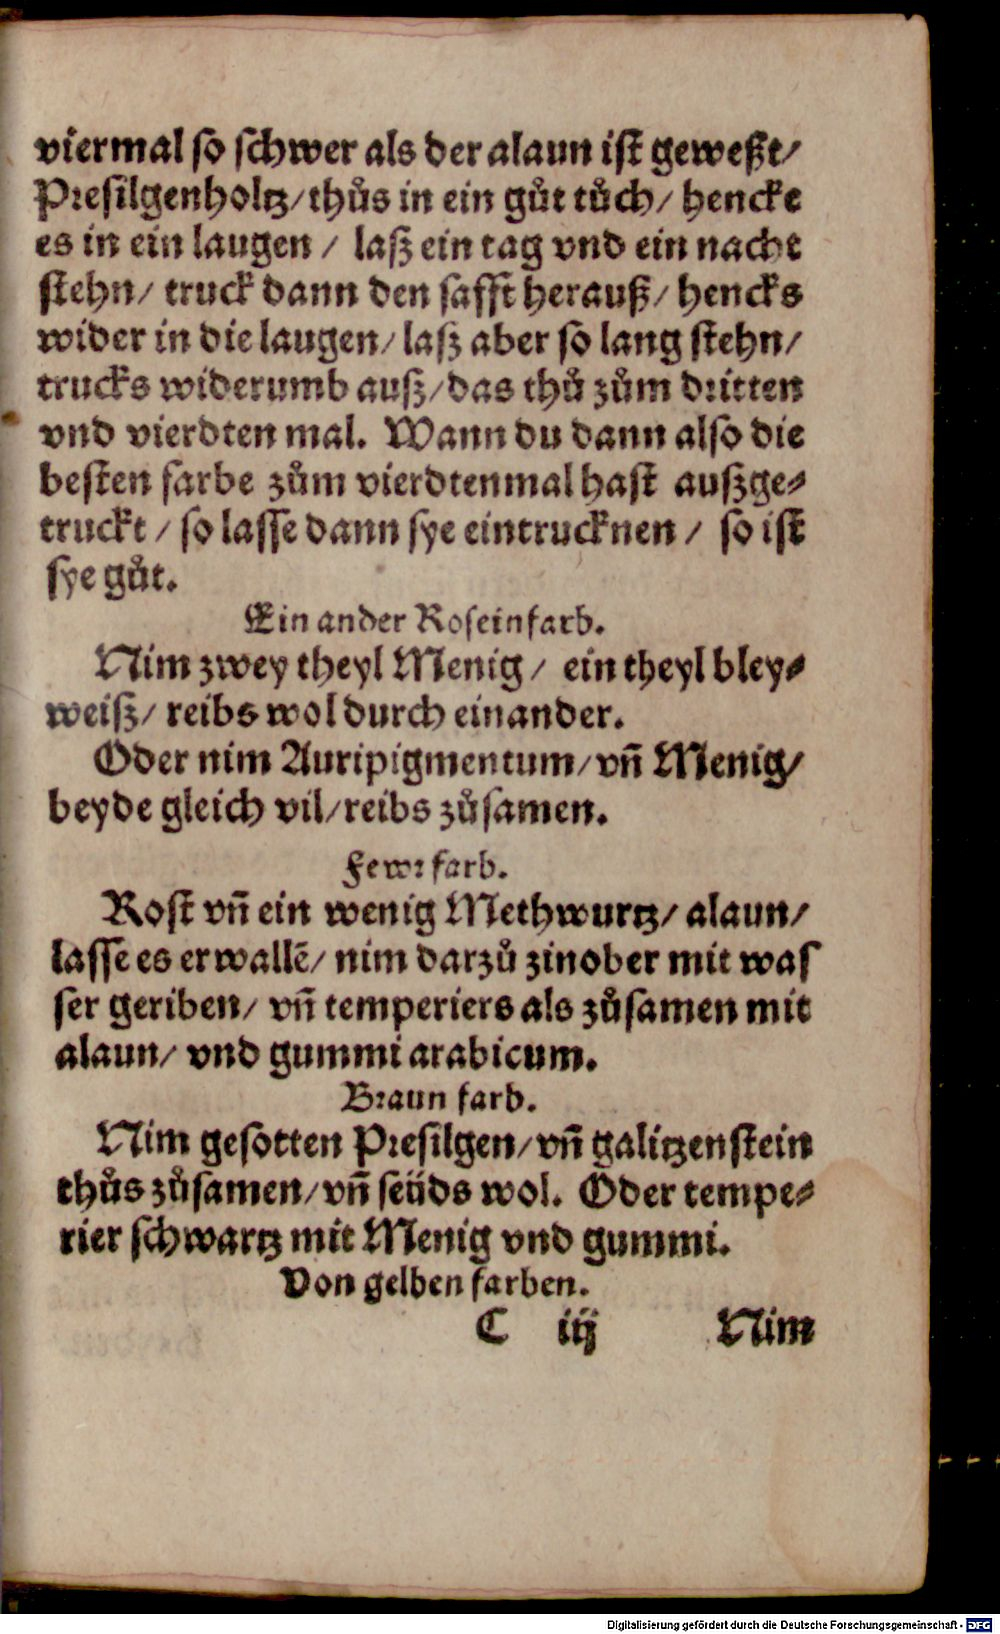 viermal so schwer als der alaun ist geweßt/
Presilgenholtz/thůs in ein gůt tůch/ hencke
es in ein laugen / laß ein tag vnd ein nacht
stehn/ truck dann den safft herauß/ hencks
wider in die laugen/ laß aber so lang stehn/
trucks widerumb auß/das thů zům dritten
vnd vierdten mal. Wann du dann also die
besten farbe zům vierdtenmal hast außge-
truckt / so lasse dann sye eintrucknen / so ist
sye gůt.
Ein ander Roseinfarb.
Nim zwey theyl Menig / ein theyl bley-
weiß/ reibs wol durch einander.
Oder nim Auripigmentum/vñ Menig/
beyde gleich vil/reibs zůsamen.
Fewr farb.
Rost vñ ein wenig Methwurtz/ alaun/
lasse es erwallē/ nim darzů zinober mit was
ser geriben/ vñ temperiers als zůsamen mit
alaun/ vnd gummi arabicum.
Braun farb.
Nim gesotten Presilgen/vñ galitzenstein
thůs zůsamen/vñ seüds wol. Oder tempe-
rier schwartz mit Menig vnd gummi.
Von gelben farben.
C iij Nim
Digitalisierung gefördert durch die Deutsche Forschungsgemeinschaft - DFG